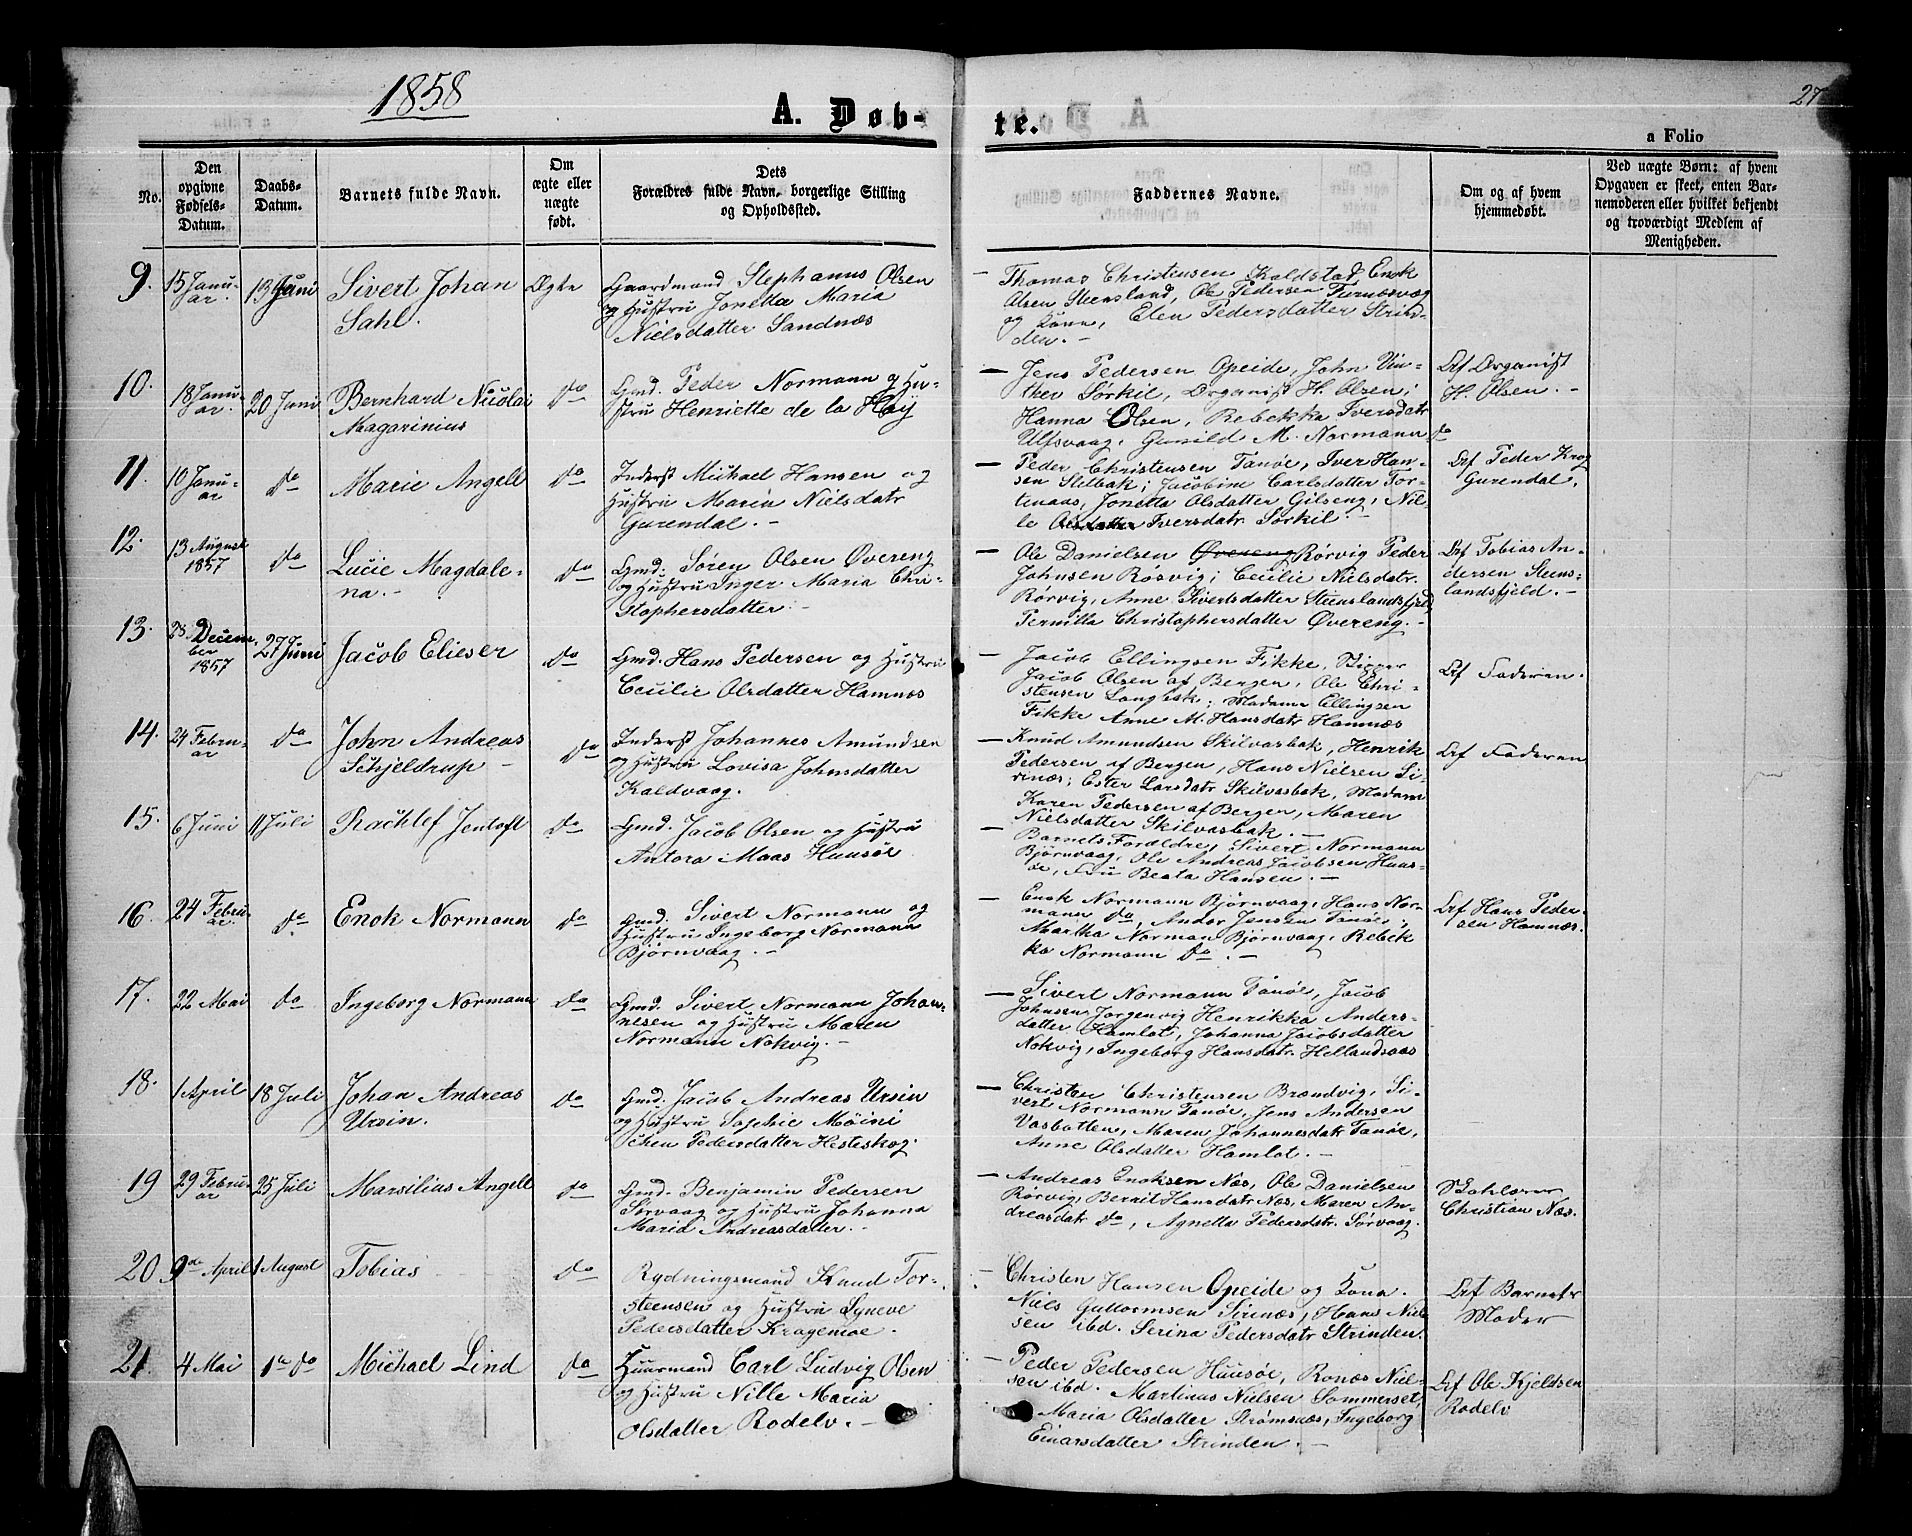 1858
A. Døb-
te.
27
a Folio
No.
Den
opgivne
Fødsels-
Datum.
Daabs-
Datum.
Barnets fulde Navn.
Om
ægte eller
uægte
født.
Dets
Forældres fulde Navn, borgerlige Stilling
og Opholdssted.
Faddernes Navne.
Om og af hvem
hjemmedøbt.
Ved uægte Børn: af hvem
Opgaven er skeet, enten Bar-
nemoderen eller hvilket bekjendt
og troværdigt Medlem af
Menigheden.
9.
15 Janu-
ar.
13 Juni
Sivert Johan
Sahl.
Ægte
Gaardmand Stephanus Olsen
og Hustru Jonetta Maria
Nielsdatter Sandnæs
Thomas Christensen Kaldstad, Enok
Olsen Steensland, Ole Pedersen Furnesvæg
og Kone, Elen Pedersdatter Strin-
den. -
10.
18 Janu-
ar.
20 Juni
Bernhard Nicolai
Magarinius
do
Gmd. Peder Normann og Hu-
stru Henriette de la Hay
Jens Pedersen Opeide, John Vin-
ther Sørkil, Organist H. Olsen;
Hanna Olsen, Rebekka Iversdatr
Ulfsvaag, Gunild M. Normann do
Af Organist
H. Olsen. -
11.
10 Janu-
ar
do
Marie Angell
do
Inderst Michael Hansen og
Hustru Maria Nielsdatr
Gurendal. -
Peder Christensen Tanøe, Iver Han-
sen Stelbak; Jacobine Carlsdatter Tor-
tenaas, Jonetta Olsdatter Gilseng, Nil-
le Olsdatter Iversdatr Sørkil. -
Af Peder Krog
Gurendal,
12.
13 August
1857
do
Lucie Magdale-
na. -
do
Gmd. Søren Olsen Øvereng
og Hustru Inger Maria Chri-
stophersdatter. -
Ole Danielsen Øvereng Rørvig, Peder
Johnsen Røsvig; Cecilie Nielsdatr.
Rørvig, Anne Sivertsdatter Steenslandsfjeld
Pernilla Christophersdatter Øvereng. -
Af Tobias An-
dersen Steens-
landsfjeld. -
13.
28. Decem-
ber
1857
27 Juni
Jacob Elieser
do
Gmd. Hans Pedersen og Hustru
Cecilie Olsdatter Hamnæs
Jacob Ellingsen Fikke,
Jacob Olsen af Bergen, Ole Chri-
stensen Langbak; Madame Ellingsen
Fikke Anne M. Hansdatr. Hamnæs
Af Faderen.
14.
24 Febru-
ar
do
John Andreas
Schjeldrup -
do
Inderst Johannes Amundsen
og Hustru Lovisa Johnsdatter
Kaldvaag.
Knud Amundsen Skilvasbak, Henrik
Pedersen af Bergen, Hans Nielsen Si-
rinæs; Ester Larsdatr Skilvasbak, Madame
Karen Pedersen af Bergen, Maren
Nielsdatter Skilvasbak. -
Af Faderen
15.
6 Juni
11 Juli
Rachlef Jentoft
do
Gmd. Jacob Olsen og Hustru
Antora Maas Huusøe
Barnets Forældre, Sivert Normann
Bjørnvaag, Ole Andreas Jacobsen Huus-
øe, Fru Beata Hansen. -
16.
24 Febru-
ar.
do
Enok Normann
do
Gmd. Sivert Normann og
Hustru Ingeborg Normann
Bjørnvaag. -
Enok Normann Bjørnvaag, Hans Nor-
mann do, Andor Jensen Tanøe;
Martha Norman Bjørnvaag, Rebek
ka Normann do. -
Af Hans Peder-
sen Hamnæs.
17.
22 Mai
do
Ingeborg Normann
do
Gmd. Sivert Normann Johan-
nesen og Hustru Maren
Normann Nokvig. -
Sivert Normann Tanøe, Jacob
Johnsen Jørgenvig Henrikka Anders-
datter Hamlot, Johanna Jacobsdatter
Nokvig, Ingeborg Hansdatr. Hellandsaas
18.
1 April
18 Juli
Johan Andreas
Ursin.
do
Gmd. Jacob Andreas Ursin
og Hustru Sophie Møini
chen Pedersdatter Hesteskog.
Christen Christensen Brandvig, Si-
vert Normann Tanøe, Jens Andersen
Vasbotten, Maren Johannesdatr Tanøe,
Anne Olsdatter Hamlot. -
19
29 Febru-
ar
25 Juli
Marsilius Angell
do
Gmd. Benjamin Pedersen
Sørvaag og Hustru Johanna
Maria Andreasdatter. -
Andreas Enoksen Næs, Ole Danielsen
Rørvig, Berrit Hansdatr Næs, Maren An-
dreasdatr do, Agnetta Pedersdatr. Sørvaag.
Skolelærer
Christian Næs.
20
9de April
1 August
Tobias
do
Rydningsmand Knud Tor-
steensen og Hustru Syneve
Pedersdatter Kragemoe.
Christen Hansen Opeide og Kona.
Niels Guttormsen Sirinæs, Hans Niel-
sen ibd. Serina Pedersdatr Strinden.
Af Barnets
Moder
21.
4 Mai
1ste do
Michael Lind
do
Huusmand Carl Ludvig Olsen
og Hustru Nille Maria
Olsdatter Rodelv. -
Peder Pedersen Huusøe, Ronæs Niel-
sen ibd. Martinus Nielsen Sommerset,
Maria Olsdatter Strømsnæs, Ingeborg
Einarsdatter Strinden. -
Af Ole Kjeldsen
Rodelv